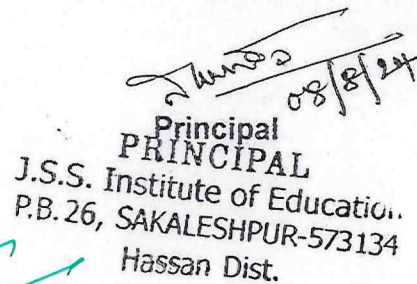 08/8/24
Principal
PRINCIPAL
J.S.S. Institute of Education.
P.B. 26, SAKALESHPUR-573134
Hassan Dist.